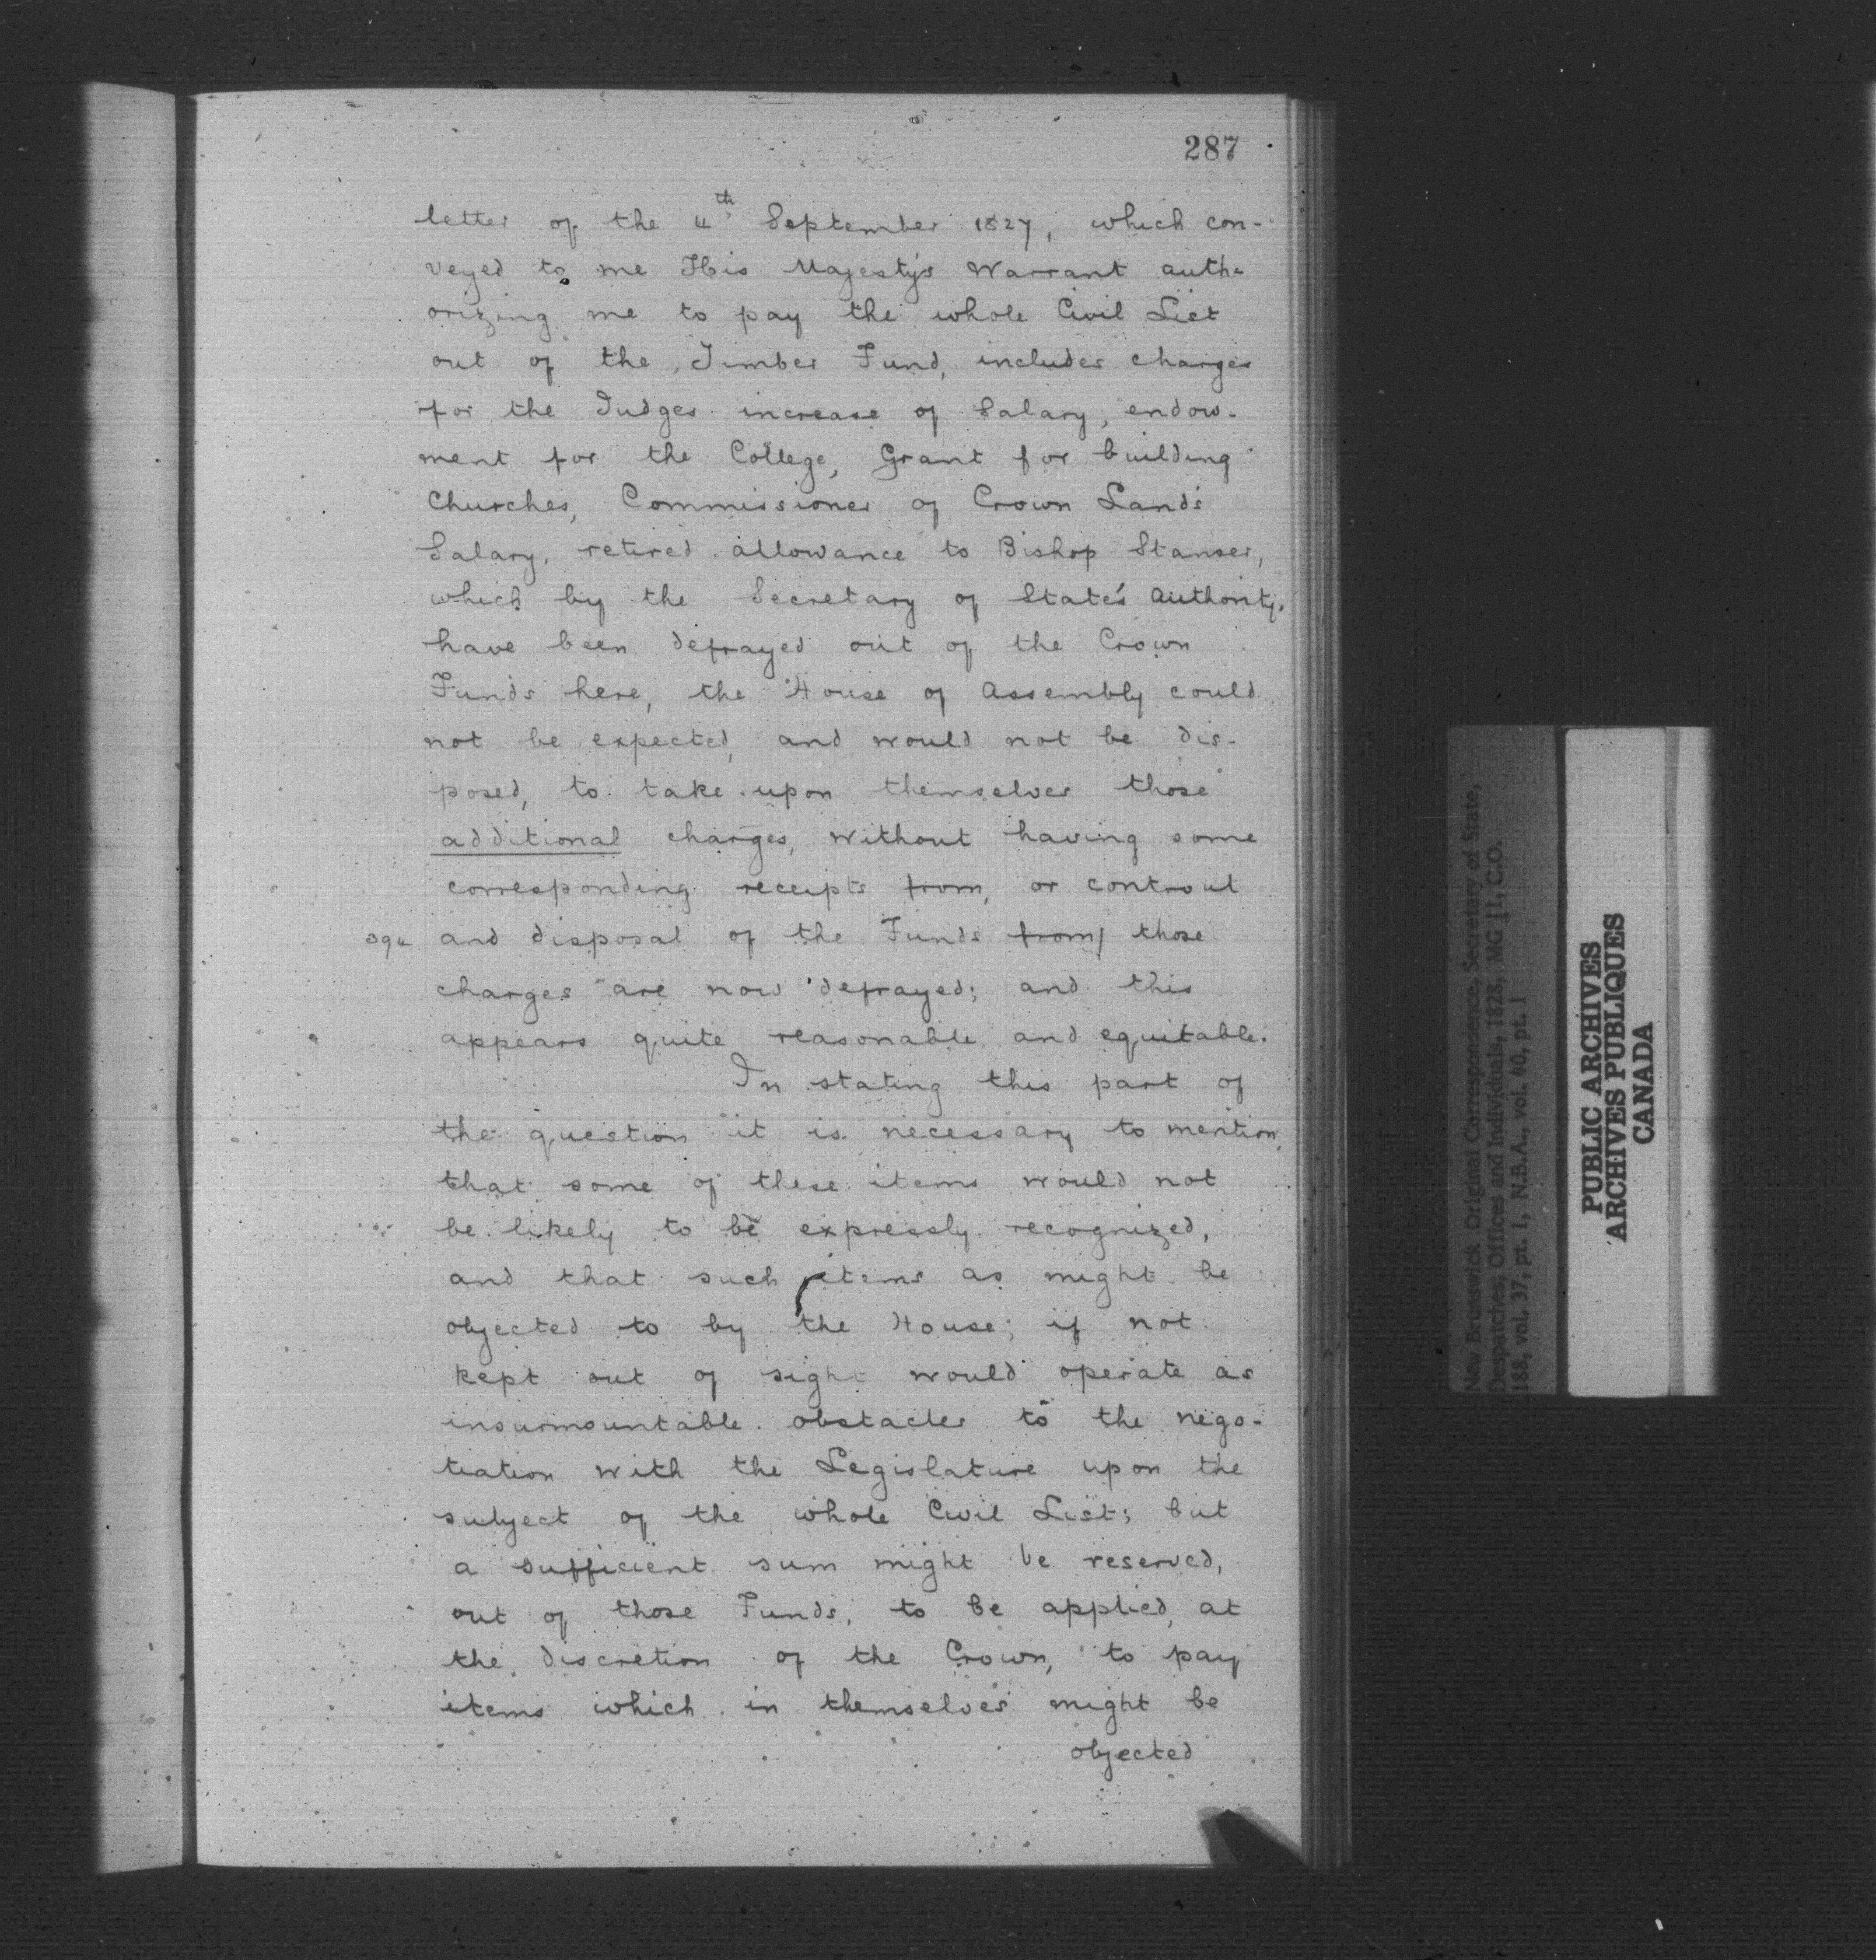 287
letter of the 4th September 1827, which con-
veyed to me His Majesty's Warrant auth=
orizing me to pay the whole Civil List
out of the Timber Fund, includes charges
for the Judges increase of Salary, endow-
ment for the College, Grant for building
Churches, Commissioner of Crown Land's
Salary, retired allowance to Bishop Stanser,
which by the Secretary of State's Authority,
have been defrayed out of the Crown
Funds here, the House of Assembly could
not be expected, and would not be dis-
posed, to take upon themselves those
additional charges, without having some
corresponding receipts from, or controul
394 and disposal of the Funds from/ those
charges are now defrayed; and this
appears quite reasonable and equitable.
In stating this part of
the question it is necessary to mention,
that some of these items would not
be likely to be expressly recognized,
and that such items as might be
objected to by the House; if not
kept out of sight would operate as
insurmountable obstacles to the nego-
tiation with the Legislature upon the
subject of the whole Civil List; but
a sufficient sum might be reserved,
out of those Funds, to be applied, at
the discretion of the Crown, to pay
items which in themselves might be
objected
New Brunswick Original Correspondence, Secretary of State,
Despatches; Offices and Individuals, 1828, MG 11, C.O.
188, vol. 37, pt. 1, N.B.A., vol. 40, pt. 1
PUBLIC ARCHIVES
ARCHIVES PUBLIQUES
CANADA